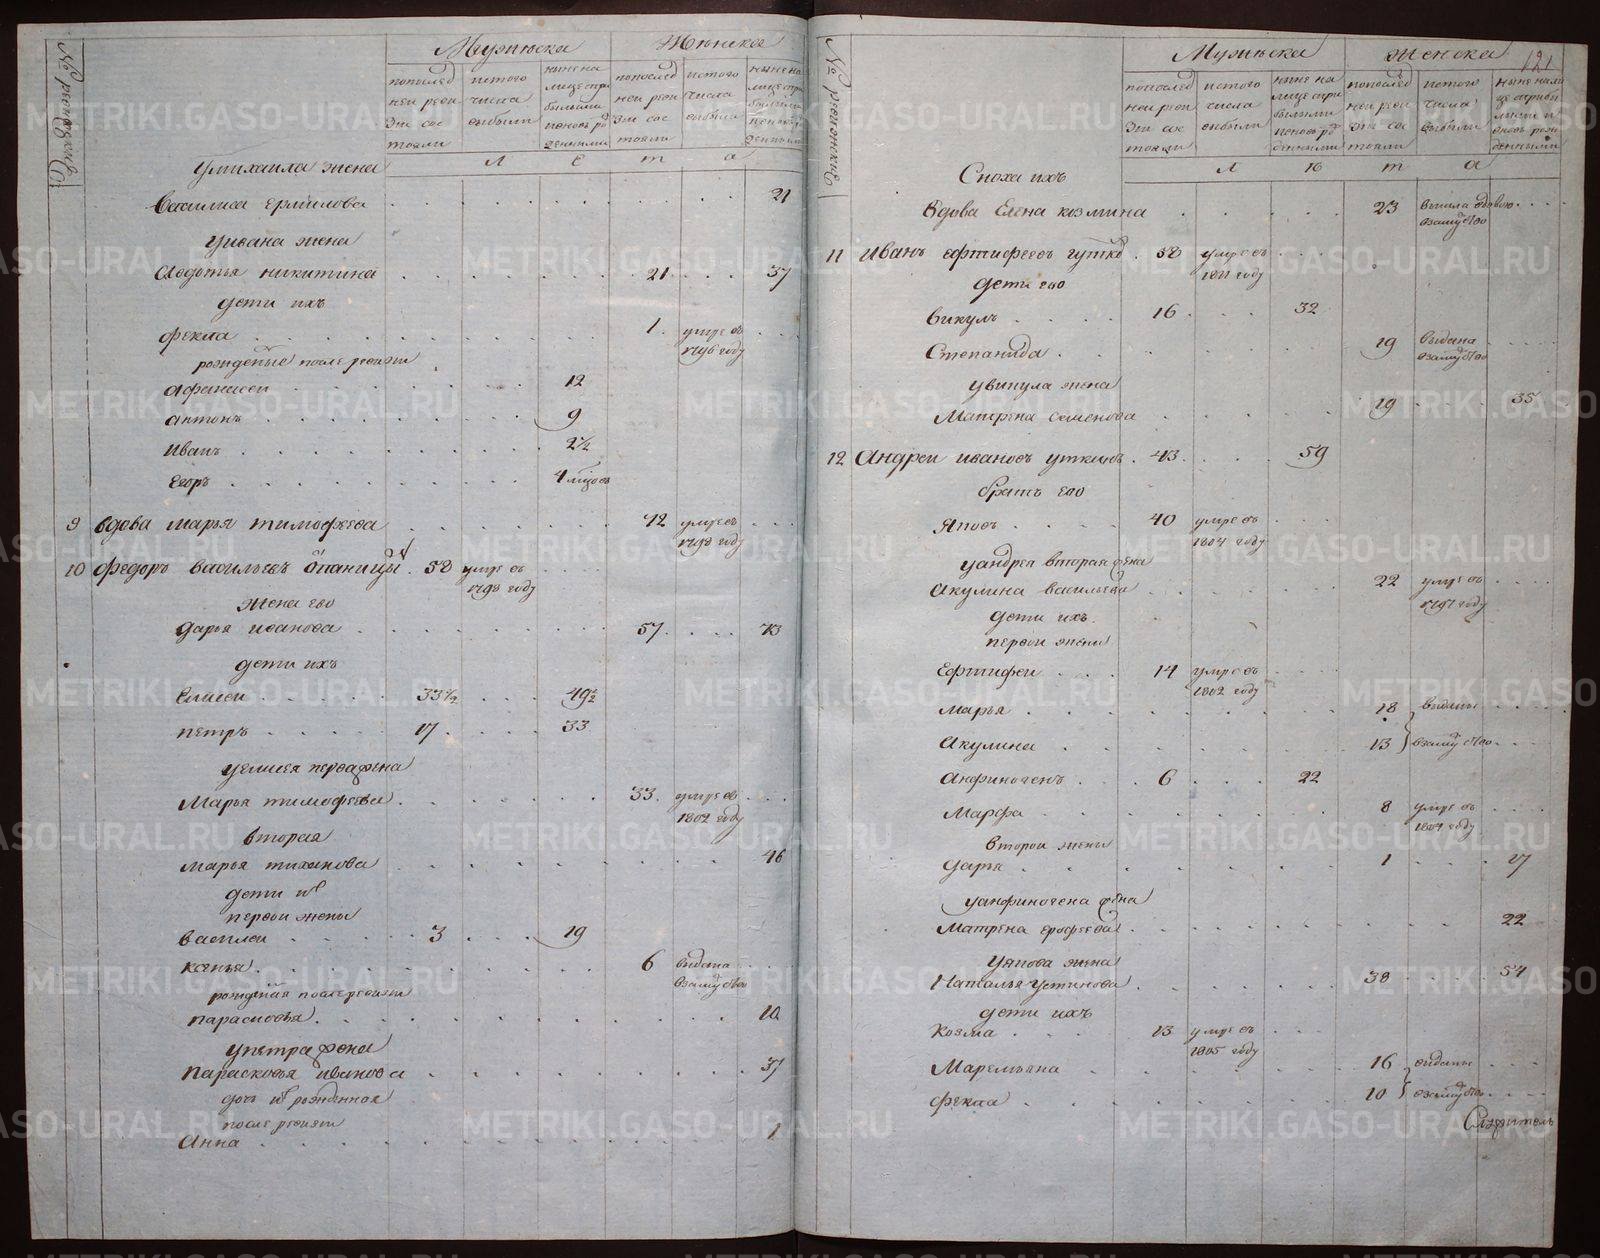 № ревизские
Мужеска
Женска
по послед
ней реви
зии сос
тояли
ис того
числа
выбыли
ныне на
лице
по послед
ней реви
зии сос
тояли
ис того
числа
выбыли
ныне на
лице
Л е т а
у михаила жена
Василиса ермилова 21
у ивана жена
Авдотья никитина 21 37
дети ихъ
фекла 1 умре въ
1796 году
рожденые после ревизии
Афанасеи 12
антонъ 9
Иванъ 2½
Егоръ
9 вдова марья тимофеева 72 умре въ
1798 году
10 федоръ васильевъ 58 умре въ
1798 году
жена его
дарья иванова 57 73
дети ихъ
Елисеи 33½ 49½
петръ 17 33
у елисея перва жена
Марья тимофеева 33 умре въ
1802 году
вторая
марья тиханова 46
дети
первои жены
василеи 3 19
ксенья 6 выдана
взамужство
рожденая после ревизии
парасковья 10
у петра жена
Парасковья иванова 37
дочь рожденная
после ревизии
Анна 1
№ ревизские
Мужеска
Женска
121
по послед
ней реви
зии сос
тояли
ис того
числа
выбыли
ныне на
лице при
былыми
и вновь ро
денными
по послед
ней реви
зии сос
тояли
ис того
числа
выбыли
ныне на ли
це прибы
лыми и
вновь рож
денными
Л ѣ т а
Сноха ихъ
Вдова Елена козмина 23 вышла вдовою
взамужство
11 Иванъ ефтифеевъ утки 58 умре въ
1811 году
дети его
викулъ 16 32
Степанида 19 выдана
взамужство
у викула жена
Матрена семенова 19 35
12 Андреи ивановъ уткинъ 43 59
братъ его
Яковъ 40 умре въ
1804 году
у андрея вторая жена
Акулина васильева 22 умре въ
1797 году
дети ихъ
первои жены
Ефтифеи 14 умре въ
1802 году
Марья 18 выданы
Акулина 13 взамужство
Анфиногенъ 6 22
Марфа 8 умре въ
1804 году
второи жены
Дарья 1 17
у анфиногена жена
Матрена ерофеева 22
у якова жена
Наталья Устинова 38 54
дети ихъ
Козма 13 умре въ
1805 году
Маремьяна 16 выданы
фекла 10 взамужство
METRIKI.GASO-URAL.RU